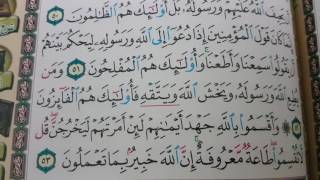 يَحِيفَ ٱللَّهُ عَلَيْهِمْ وَرَسُولُهُۥ بَلْ أُو۟لَٰٓئِكَ هُمُ ٱلظَّٰلِمُونَ ٥٠
كَانَ قَوْلَ ٱلْمُؤْمِنِينَ إِذَا دُعُوٓا۟ إِلَى ٱللَّهِ وَرَسُولِهِۦ لِيَحْكُمَ بَيْنَهُمْ
يَقُولُوا۟ سَمِعْنَا وَأَطَعْنَا وَأُو۟لَٰٓئِكَ هُمُ ٱلْمُفْلِحُونَ ٥١ وَمَن
يُطِعِ ٱللَّهَ وَرَسُولَهُۥ وَيَخْشَ ٱللَّهَ وَيَتَّقْهِ فَأُو۟لَٰٓئِكَ هُمُ ٱلْفَآئِزُونَ
وَأَقْسَمُوا۟ بِٱللَّهِ جَهْدَ أَيْمَٰنِهِمْ لَئِنْ أَمَرْتَهُمْ لَيَخْرُجُنَّ قُل
تُقْسِمُوا۟ طَاعَةٌ مَّعْرُوفَةٌ إِنَّ ٱللَّهَ خَبِيرٌۢ بِمَا تَعْمَلُونَ ٥٣